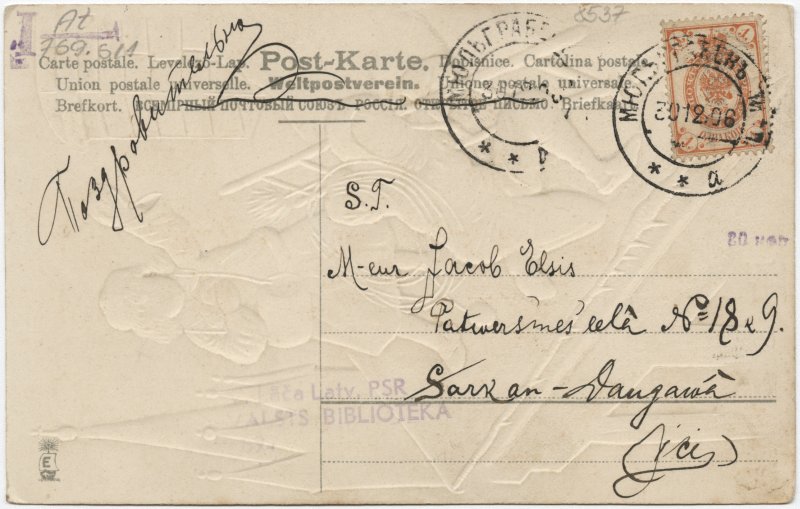 At
769.611
8537
Carte postale. Post-Karte. Cartolina postale
Union postale universelle. Weltpostverein. Unione postale universale
Brefkort. ВСЕМІРНЫЙ ПОЧТОВЫЙ СОЮЗЪ. РОССІЯ. ПИСЬМО. Briefkaart
Поздравительно
30 12.06
* * а
S.T.
80 коп
M-eur Jacob Elsis
Patwersmes eelâ № 18 & 9.
Sarkan-Daugawâ
Latv. PSR
BIBLIOTEKA